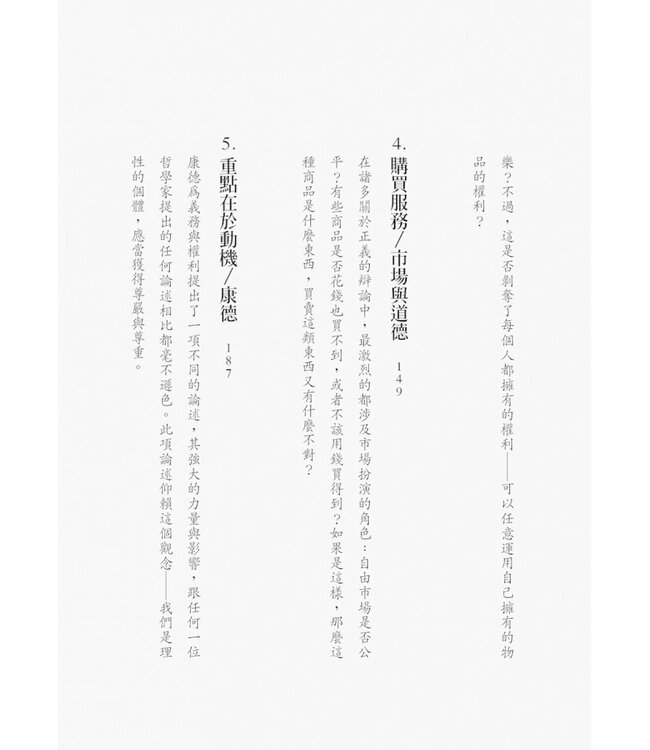 樂?不過,這是否剝奪了每個人都擁有的權利——可以任意運用自己擁有的物
品的權利?
4. 購買服務/市場與道德 149
在諸多關於正義的辯論中,最激烈的都涉及市場扮演的角色:自由市場是否公
平?有些商品是否花錢也買不到,或者不該用錢買得到?如果是這樣,那麼這
種商品是什麼東西,買賣這類東西又有什麼不對?
5. 重點在於動機/康德 187
康德為義務與權利提出了一項不同的論述,其強大的力量與影響,跟任何一位
哲學家提出的任何論述相比都毫不遜色。此項論述仰賴這個觀念——我們是理
性的個體,應當獲得尊嚴與尊重。